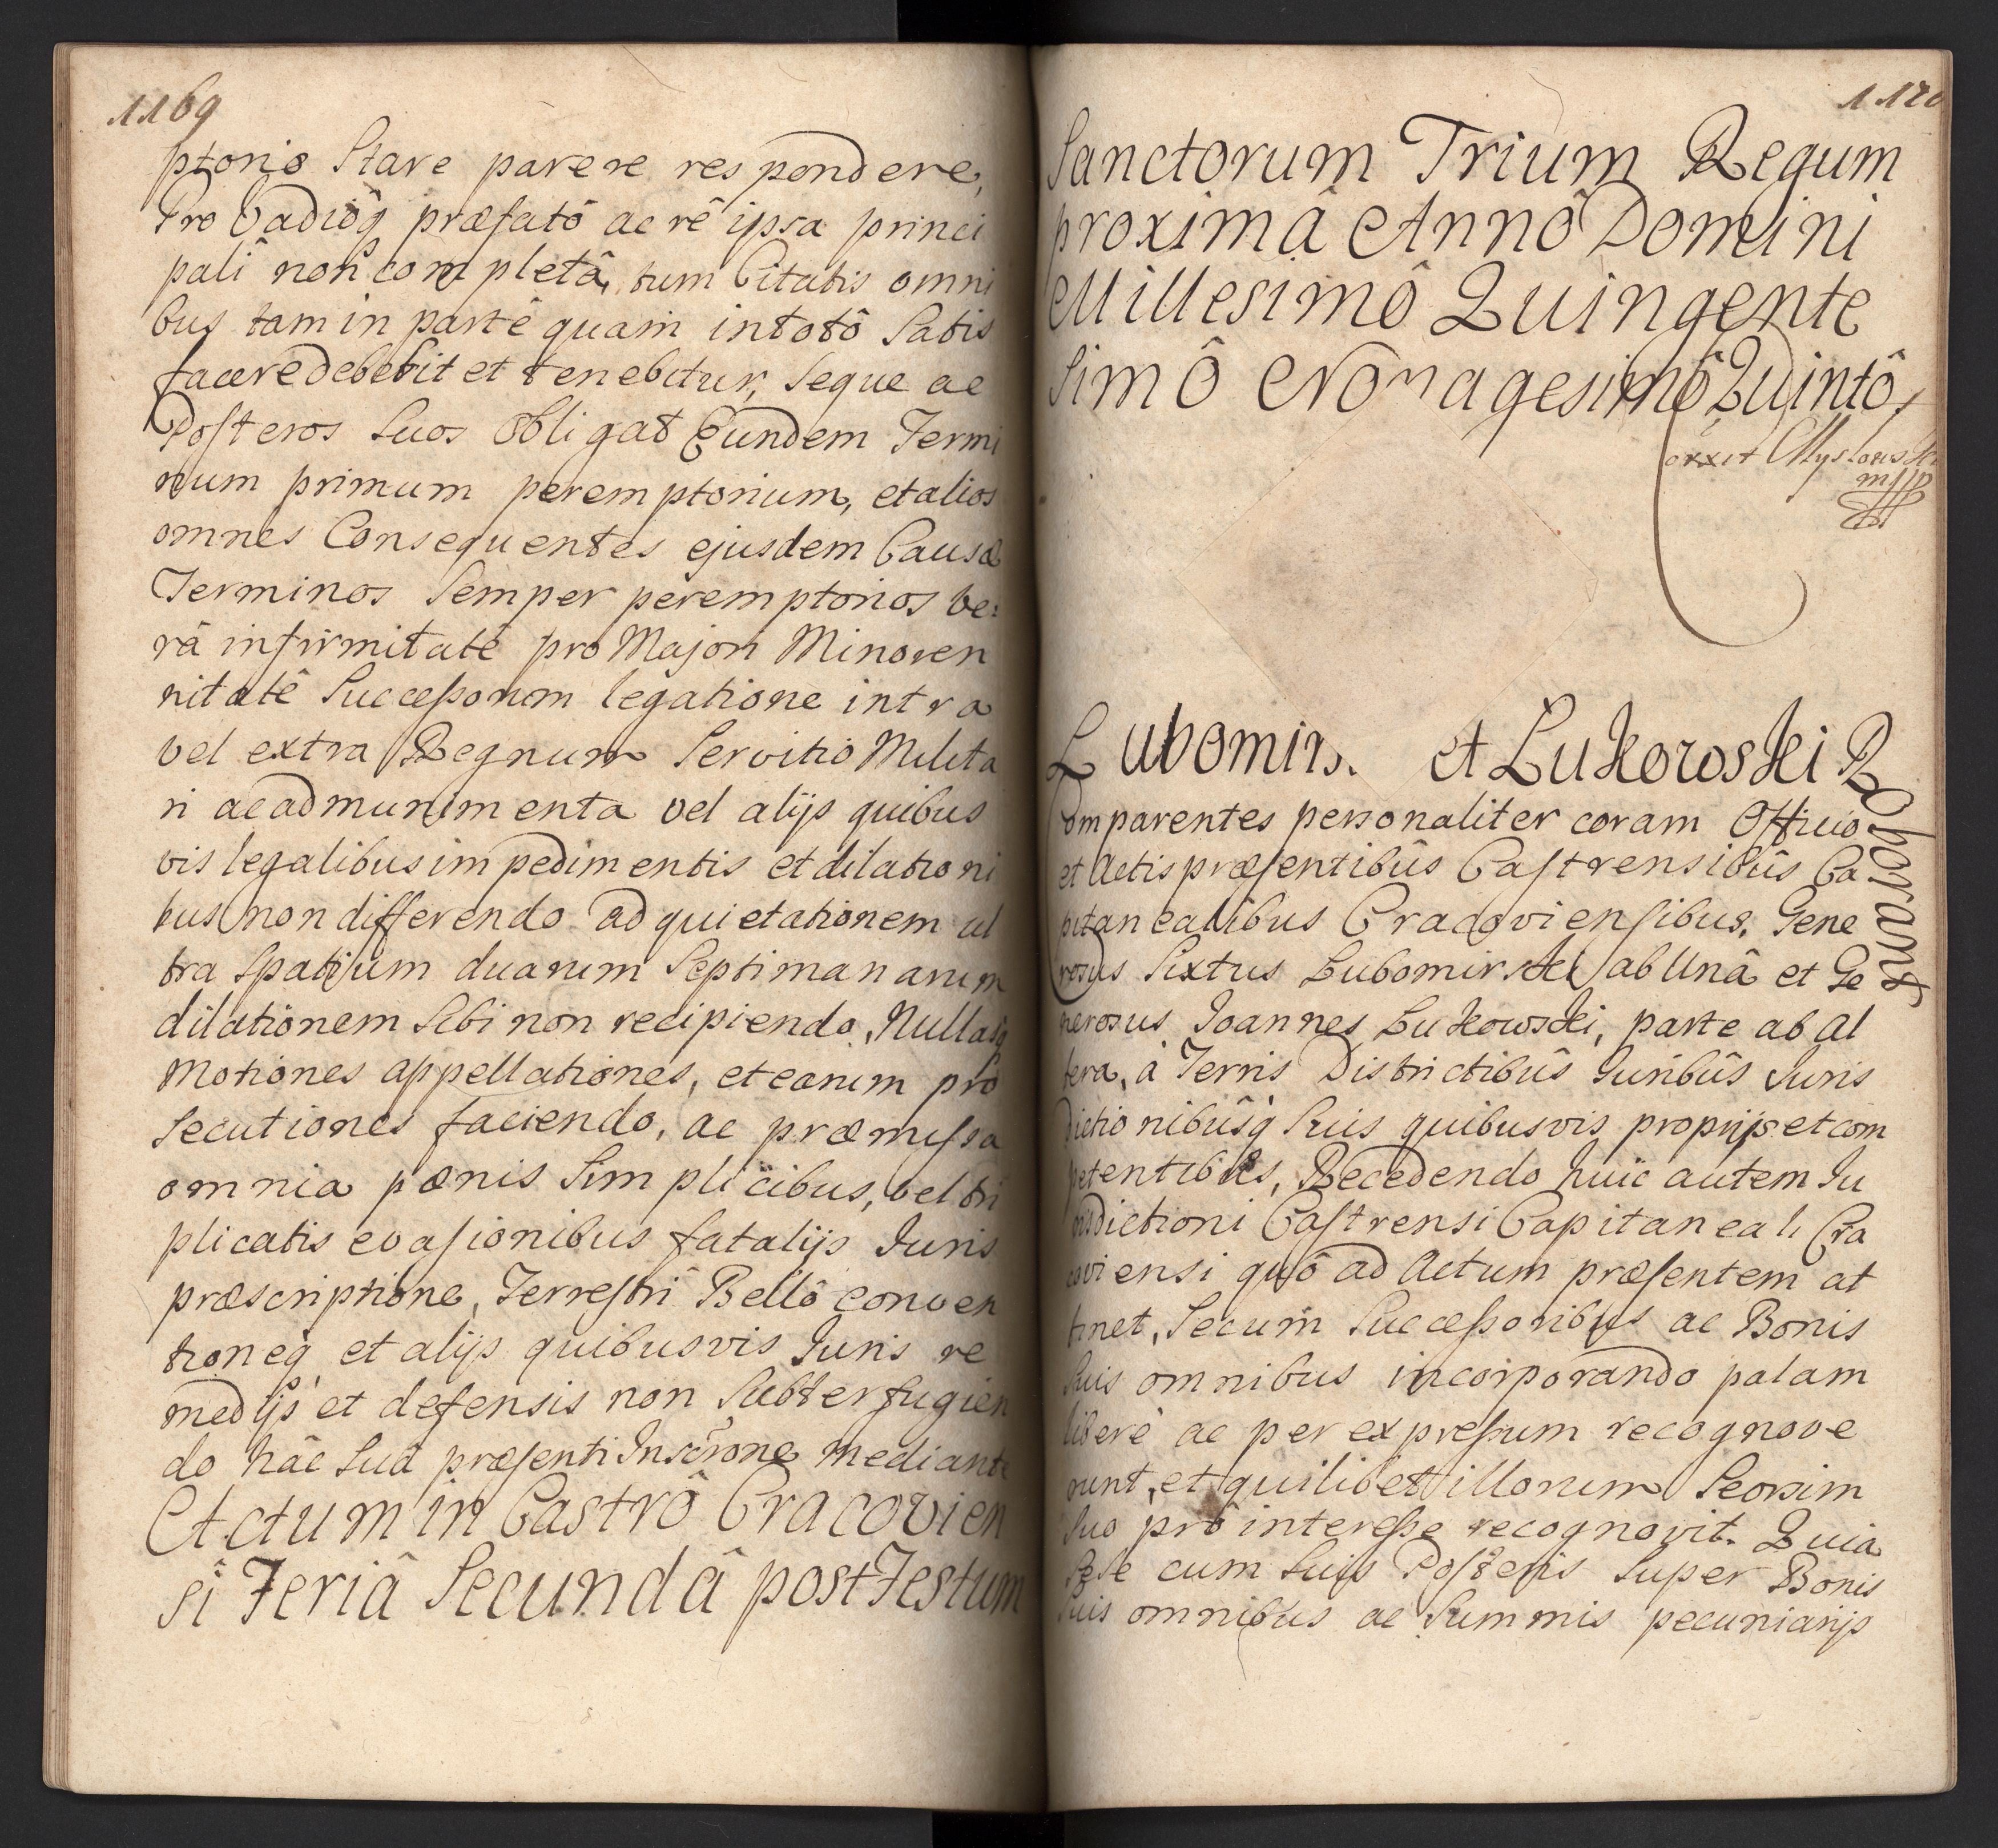 1169
ptoriô Stare parere respondere,
Pro Vadiôq præfatô ac rê ipsa princi
pali non completâ, tum Citatis omni
bus tam in partê quam in totô Satis
facere debebit et tenebitur, Seque ac
Posteros Suos Obligat Eundem Termi
num primum peremptorium, et alios
omnes Consequentes ejusdem Causæ
Terminos Semper peremptorios ve:
râ infirmitatê pro Majori Minoren
nitatê Successorum legatione intra
vel extra Regnum Servitio Milita
ri ac ad munimenta vel alijs quibus
vis legalibus impedimentis et dilationi
bus non differendo ad quietationem ul
tra Spatium duarum Septimanarum
dilationem Sibi non recipiendo, Nullasq
Motiones appellationes, et earum pro
Secutiones faciendo, ac præmissa
omnia pœnis Simplicibus, vel tri
plicatis evasionibus fatalijs Juris
præscriptione, Terrestri Bellô conven
tioneq et alijs quibusvis Juris re
medijs et defensis non Subterfugien
do hâc Suâ præsenti Inscrone mediante
Actum in Castrô Cracovien
si Feriâ Secundâ post Festum
1170
Sanctorum Trium Regum
proximâ Annô Domini
Millesimô Quingente
Simô Nonagesimô Quintô,
Lubomirs. et Lukowski R
oborant
Comparentes personaliter coram Officio
et Actis præsentibûs Castrensibûs Ca
pitanealibus Cracoviensibus, Gene
rosus Sixtus Lubomirski ab Unâ et Ge
nerosus Joannes Lukowski, parte ab al
tera, à Terris Districtibûs Juribûs Juris
dictionibûsq Suis quibusvis proprijs et com
petentibus, Recedendo huic autem Ju
risdictioni Castrensi Capitaneali Cra
coviensi quô ad Actum præsentem at
tinet, Secum Successoribus ac Bonis
Suis omnibus incorporando palam
liberè ac per expressum recognove
runt, et quilibet illorum Seorsim
Suo prô interesse recognovit. Quia
Sese cum Suis Posteris Super Bonis
Suis omnibus ac Summis pecuniarijs